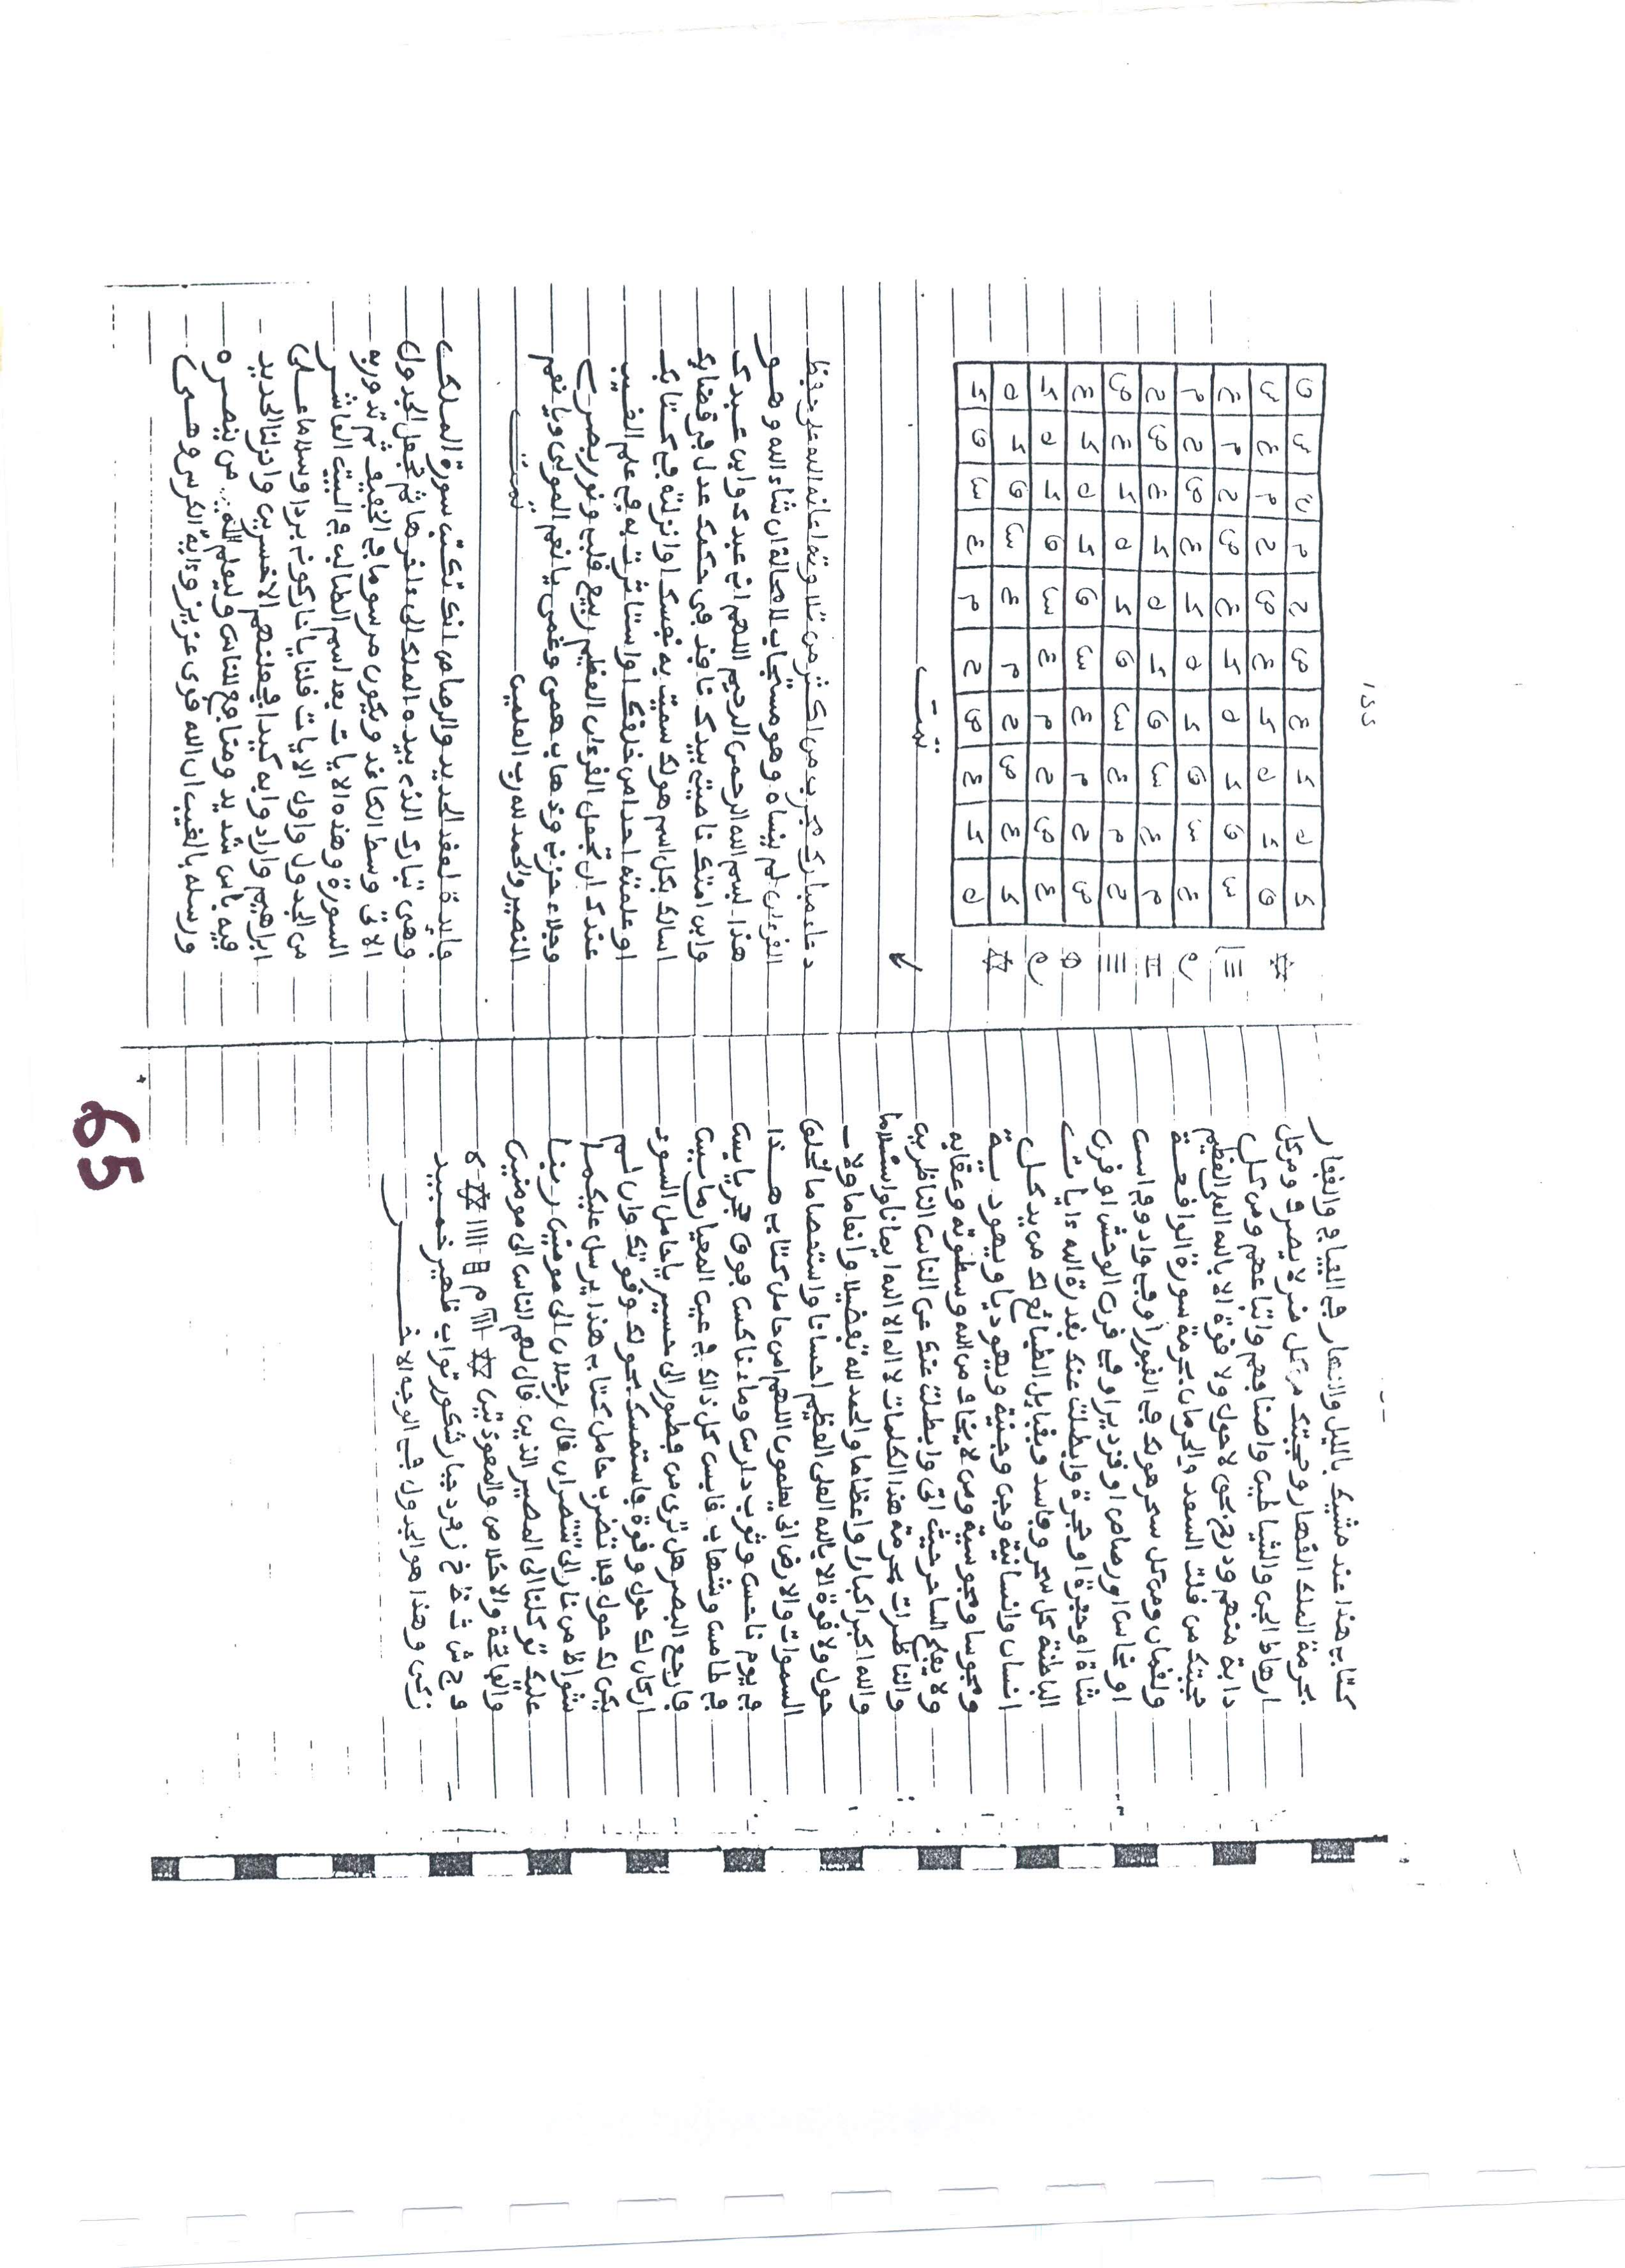 كتابي هذا عند مشيك بالليل والنهار في الفيافي والقفار
بحرمة الملك القهار وحجبتك من كل ضر لا يصرف ومن كل
ارهاط الجن والشياطين واصنافهم واتباعهم ومن كل
دابة منهم ودرج بحق لا حول ولا قوة الا بالله العلي العظيم
حجبتك من قلت السعد والحرمان بحرمة سورة الواقعة
ولقمان ومن كل سحر هو لك في القبر او في واد وفي است
او نحاس او رصاص او قزديرا وفي قرن الوحش او قرن
شاة او حجرة او شجرة وابطلت عنك بقدرة الله ءايات
الباطنة كل سحر وفاسد وبقبايل الطبائع لك من يد كل
انسان وانسانية وجن وجنية ويهوديا ويهودية
ومجوسا ومجوسية ومن لا يخاف من الله وسطوته وعقابه
ولا يفلح الساحر حيث اتى وابطلت عنك عن الناس الناظرين
والناظرات بحرمة هذا الكلمات لا اله الا الله ايمانا واسلاما
والله اكبر اكبارا واعظاما والحمد لله تفضيلا وانعاما ولا
حول ولا قوة الا بالله العلي العظيم احسانا واستعصاما خلق
السموات والارض اني يعلمون اللهم امن حامل كتابي هذا
في يوم ناحس وثوب دارس وماء ناكس فوق حجر يابس
في طامس وشهاب قابس كل ذالك في عين المعيار مابين
فارجع البصر هل ترى من فطور الى حسير ياحامل السور
اركان لك حول وقوة فاستمسك بحولك وقوتك وان لم
يكن لك حول فلا تضرب حامل كتابي هذا يرسل عليكما
شواظ من نار الى تنتصران قال رجلان الى مومنين ربنا
عليك توكلنا الى المصير الذين قال لهم الناس الى مومنين
والفاتحة والاخلاص والمعوذتين
ف ج ش ث ظ خ ز فرد جبار شكور تواب ظهير خبير
زكي وهذا هو الجدول في الوجه الاخر
١٥٥
ك ه ي ع ص ح م ع س ق
ق ك ه ي ع ص ح م ع س
س ق ك ه ي ع ص ح م ع
ع س ق ك ه ي ع ص ح م
م ع س ق ك ه ي ع ص ح
ح م ع س ق ك ه ي ع ص
ص ح م ع س ق ك ه ي ع
ع ص ح م ع س ق ك ه ي
ي ع ص ح م ع س ق ك ه
ه ي ع ص ح م ع س ق ك
تمت
دعاء مبارك مجرب من اكثر من تلاوته اعانه الله على حفظ
القرءان لم ينساه وهو مستجاب لا محالة ان شاء الله وهو
هذا بسم الله الرحمن الرحيم اللهم اني عبدك وابن عبدك
وابن امتك ناصيتي بيدك نافذ في حكمك عدل في قضاؤك
اسالك بكل اسم هو لك سميت به نفسك او انزلته في كتابك
او علمته احدا من خلقك او استاثرت به في علم الغيب
عندك ان تجعل القرءان العظيم ربيع قلبي ونور بصري
وجلاء حزني وذهاب همي وغمي يا نعم المولى ويا نعم
النصير والحمد لله رب العلمين تمت
فايدة لعقد الحديد والرصاص انك تكتب سورة الملك
وهي تبارك الذي بيده الملك الى ءاخرها ثم تجعل الجدول
الاتي وسط الكاغد ويكون مرسوما في الخفيف ثم تدور به
السورة وهذه الايات بعد اسم الطالب في البيت العاشر
من الجدول واول الايات قلنا يا نار كوني بردا وسلاما على
ابراهيم وارادوا به كيدا فجعلنهم الاخسرين وانزلنا الحديد
فيه باس شديد ومنافع للناس وليعلم الله من ينصره
ورسله بالغيب ان الله قوي عزيز وءاية الكرسي وهي
65